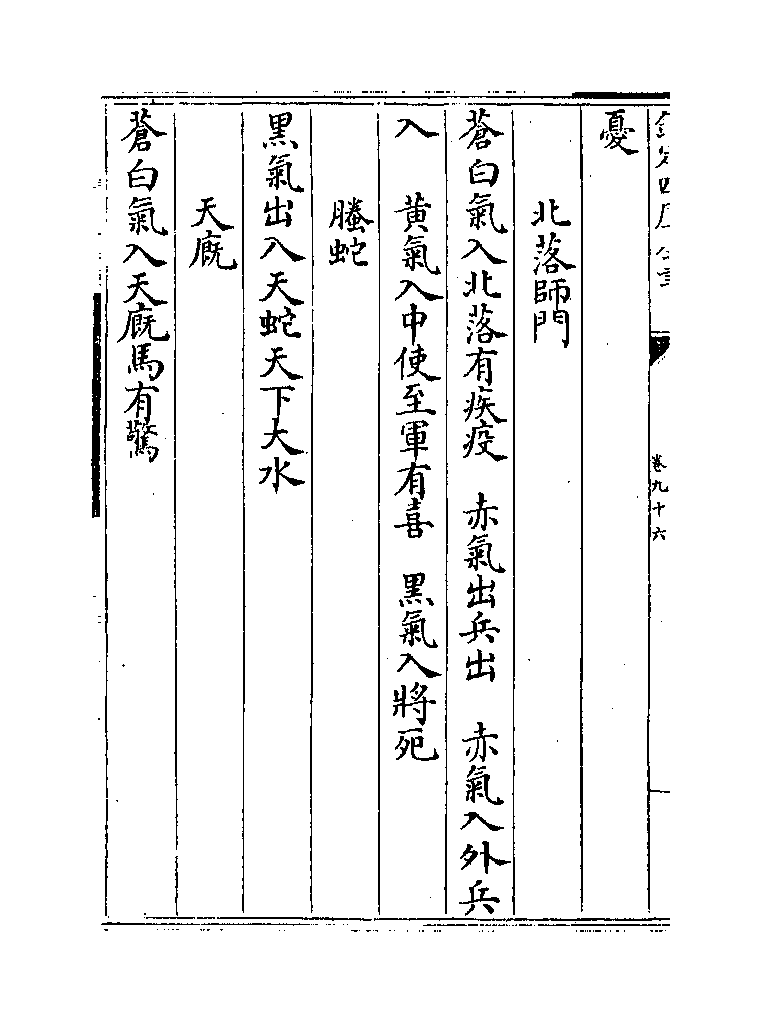 欽定四庫全書
卷九十六
憂
北落師門
蒼白氣入北落有疾疫　赤氣出兵出　赤氣入外兵
入　黄氣入中使至軍有喜　黑氣入將死
螣蛇
黑氣出入天蛇天下大水
天廐
蒼白氣入天廐馬有驚